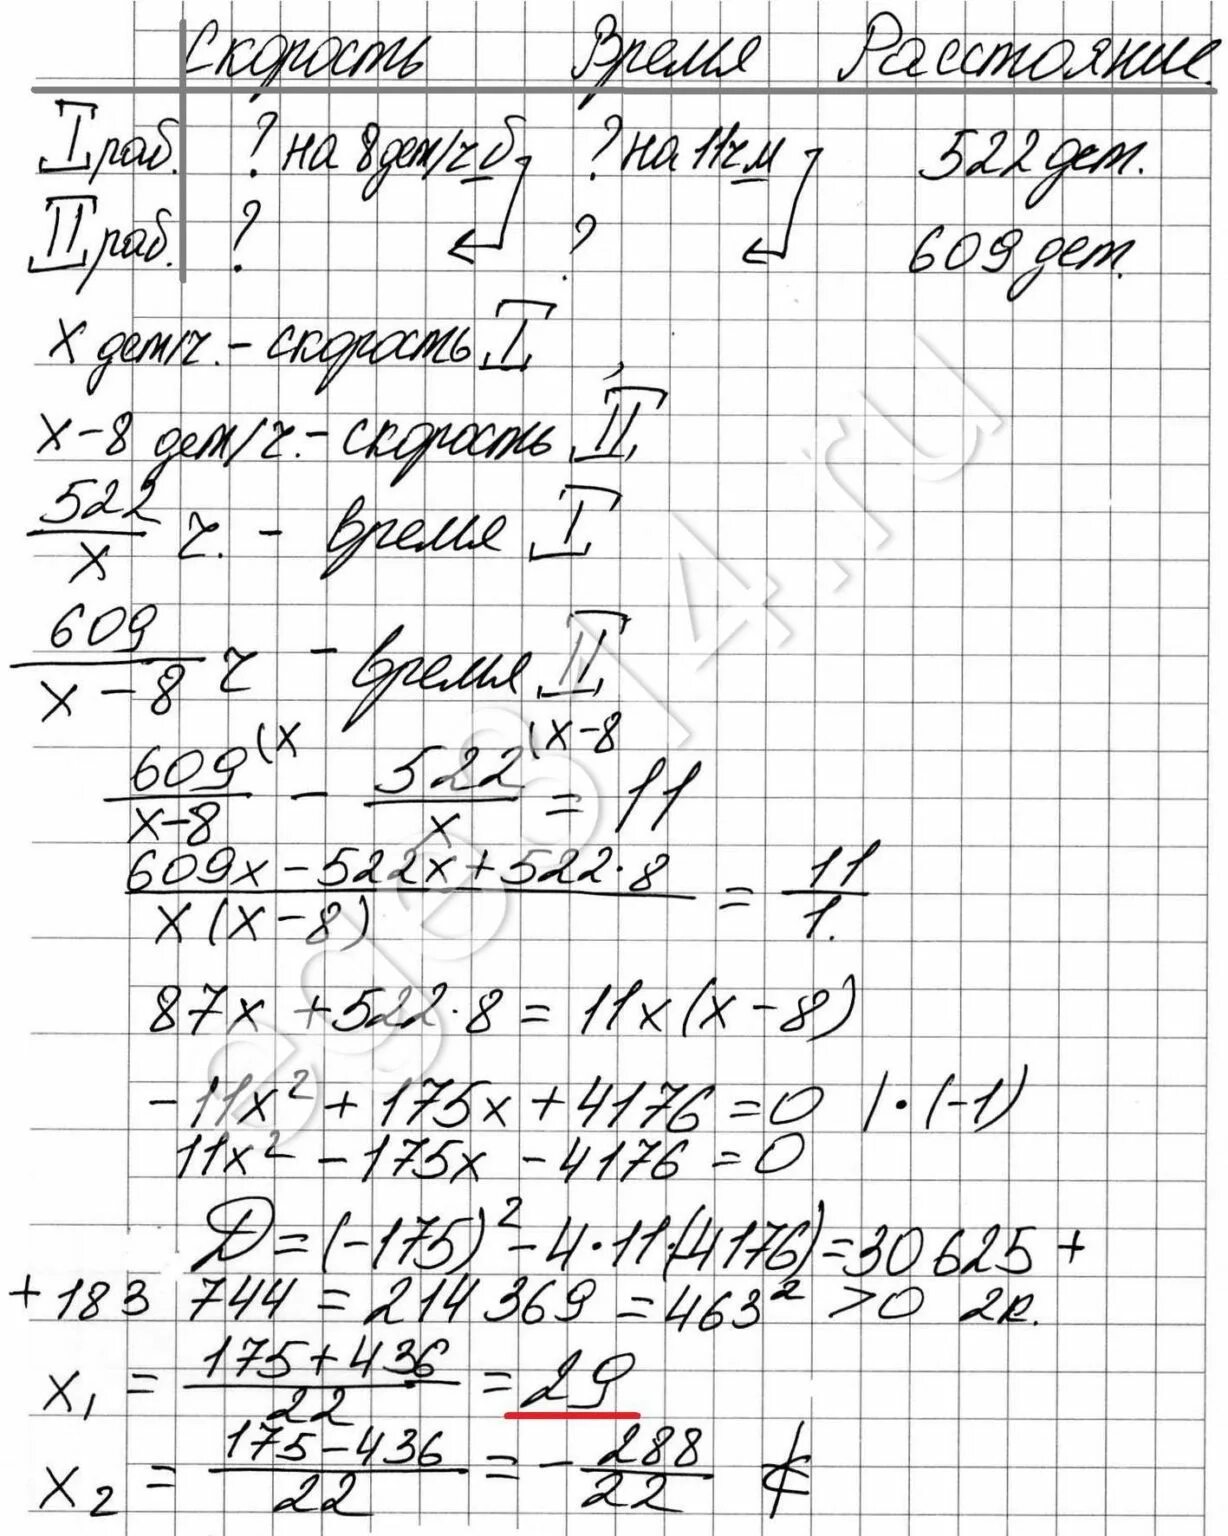 Скорость Время Расстояние
I раб. ? на 8 дет/ч б ? на 11ч м 522 дет.
II раб. ? ? 609 дет.
x дет/ч. - скорость I
x-8 дет/ч. - скорость II
522/x ч. - время I
609/x-8 ч - время II
609(x/x-8 - 522(x-8/x = 11
609x-522x+522·8/x(x-8) = 11/1.
87x +522·8 = 11x(x-8)
-11x²+175x+4176=0 |·(-1)
11x²-175x-4176=0
D=(-175)²-4·11·(-4176)=30625+
+183 744 = 214 369 =463² >0 2к.
x₁ = 175+436/22 = 29
x₂ = 175-436/22 = -288/22 ∉
ege314.ru